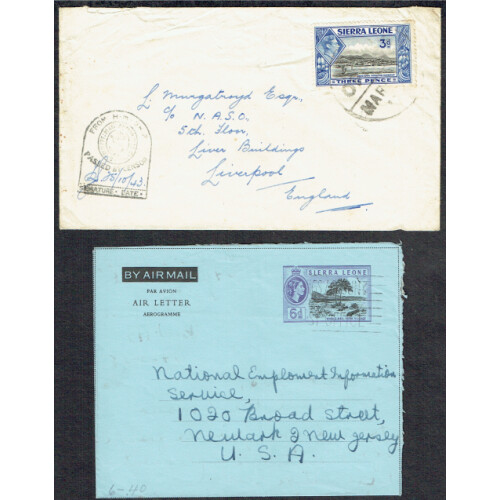 SIERRA LEONE
3d
THREE PENCE
MAR
L. Murgatroyd Esqr,
c/o N.A.S.O.
5th Floor,
Liver Buildings
Liverpool
England
FROM H.M.
PASSED BY CENSOR
25/10/43.
SIGNATURE · DATE
BY AIR MAIL
PAR AVION
AIR LETTER
AEROGRAMME
SIERRA LEONE
6d
National Emploment Information
Service,
1020 Broad street,
Newark 2 New jersey
U. S. A.
6-40